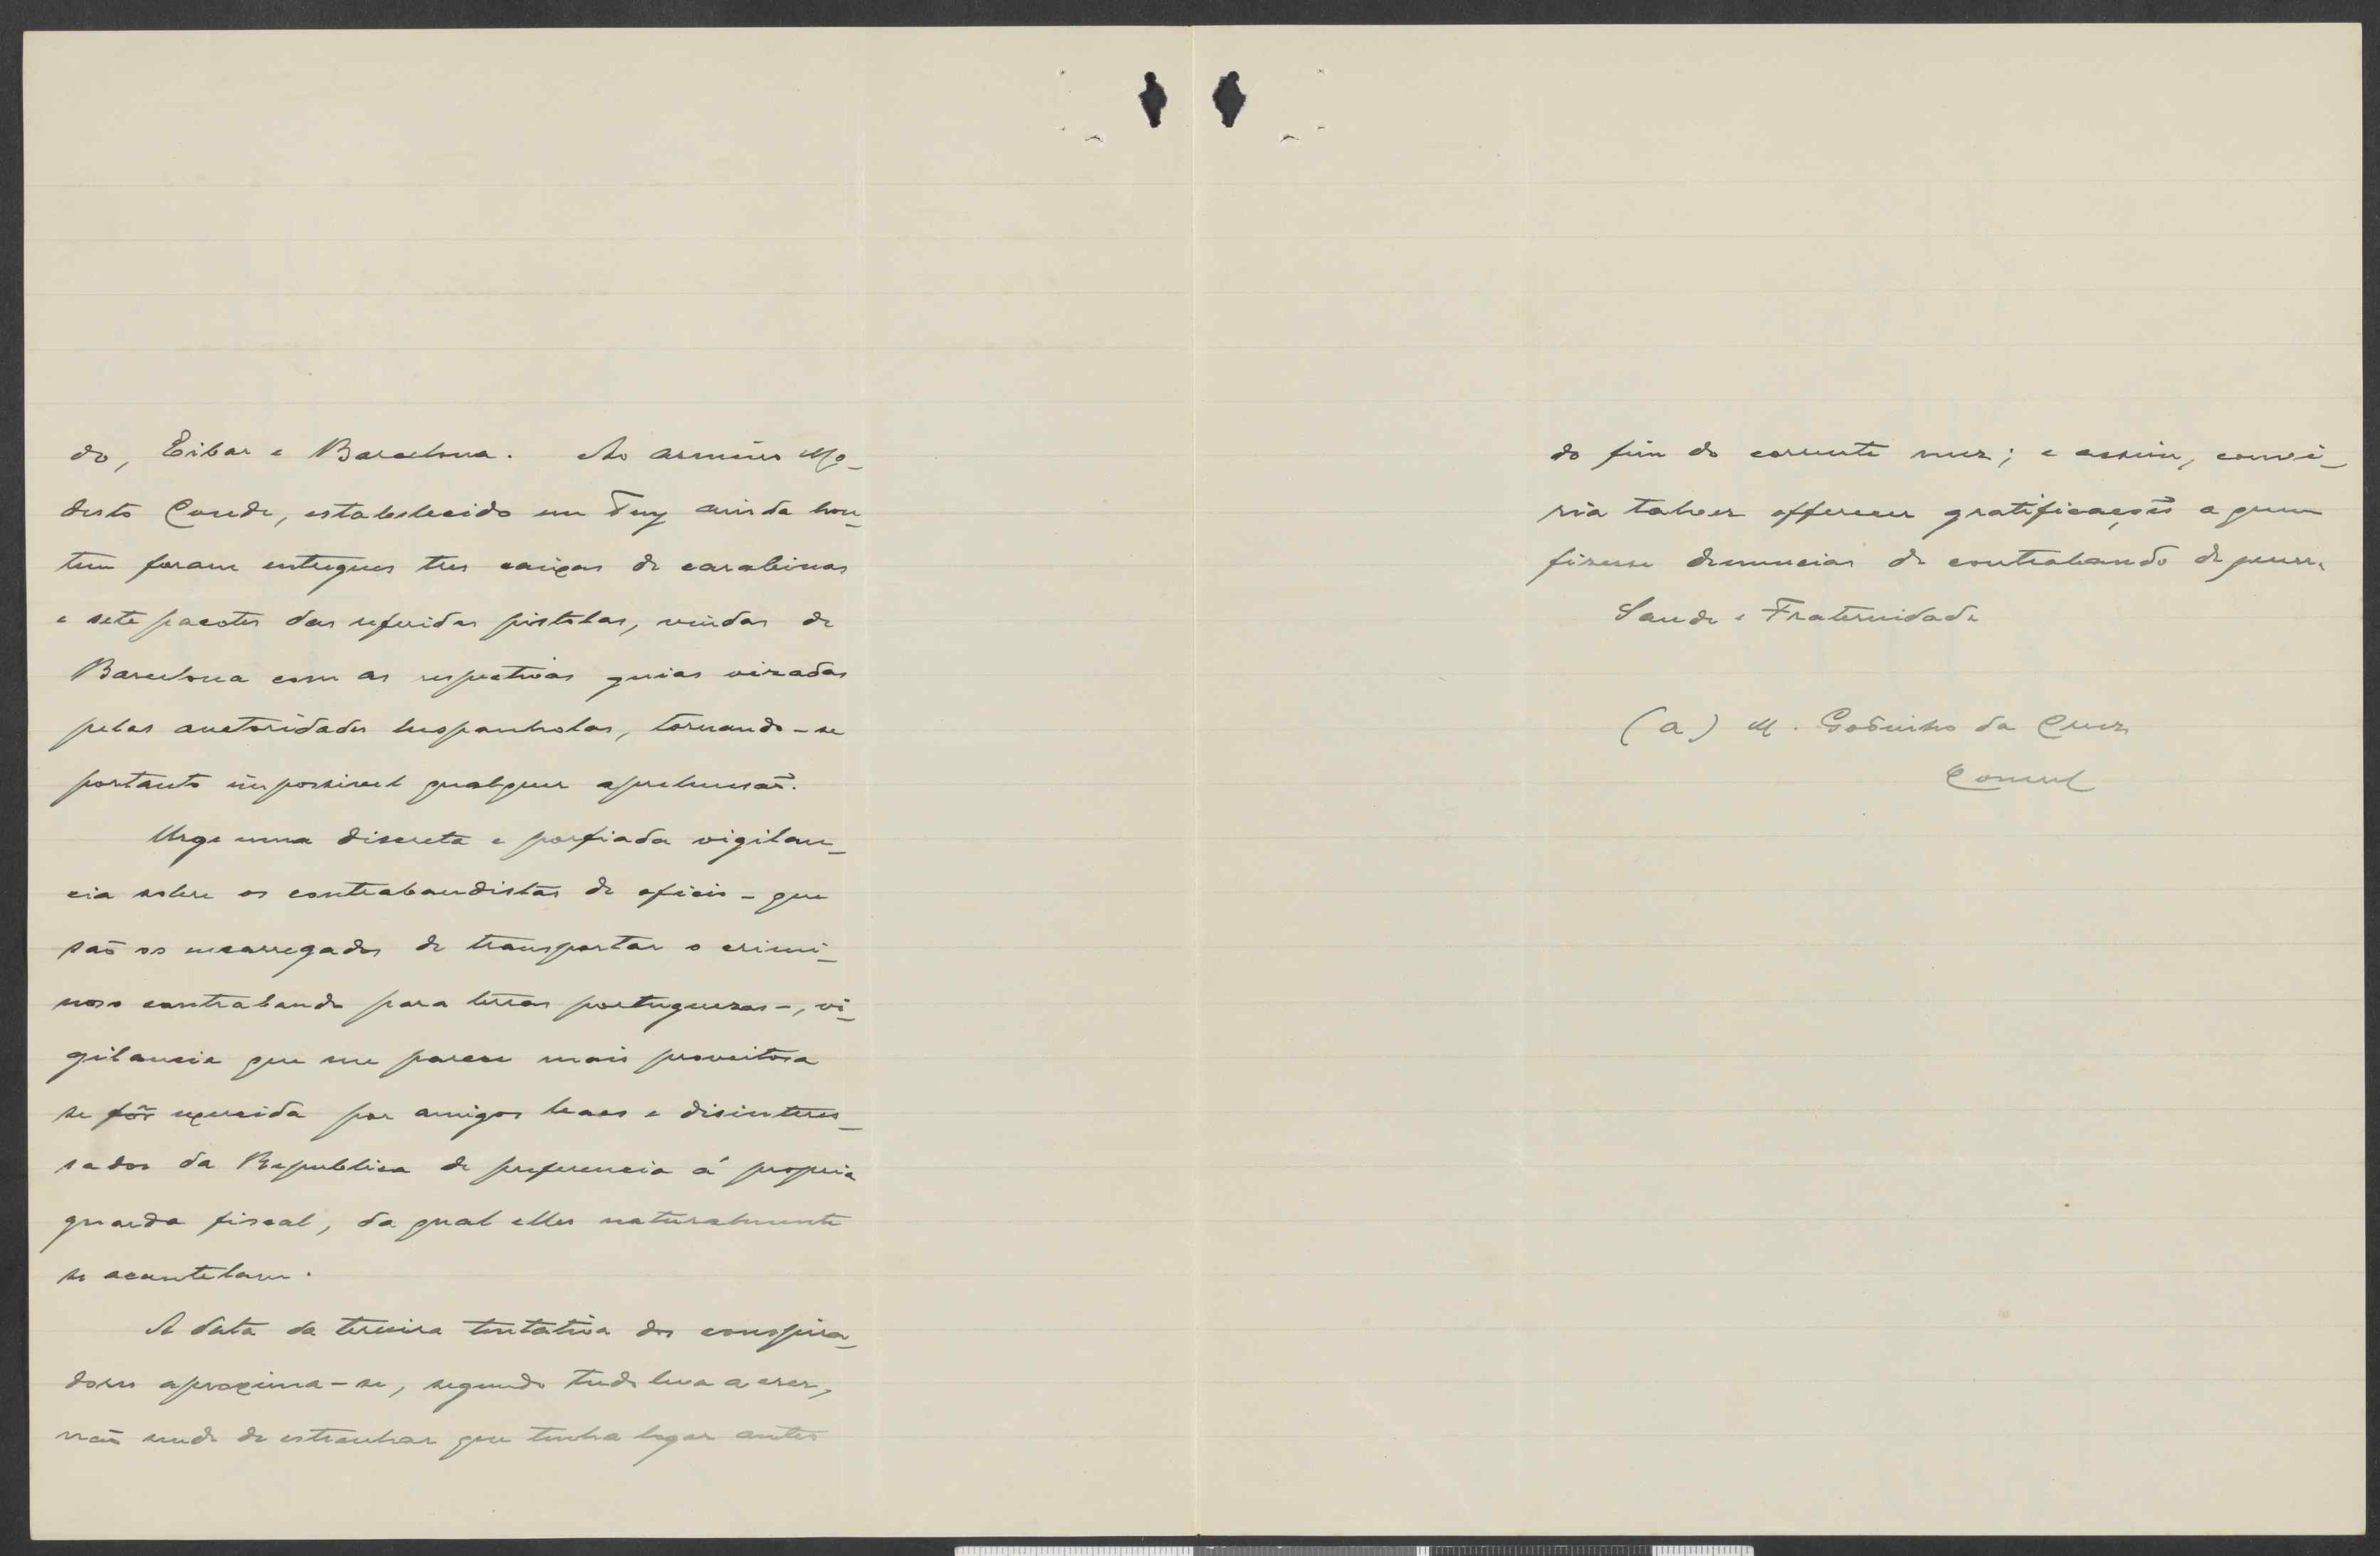 do, Eibar e Barcelona. Ao armeiro Mo-
desto Conde, estabelecido em Tuy ainda hon-
tem foram entregues tres caixas de carabinas
e sete pacotes das referidas pistolas, vindas de
Barcelona com as respectivas guias vizadas
pelas auctoridades hespanholas, tornando-se
portanto impossivel qualquer aprehensão.
Urge uma discreta e porfiada vigilan-
cia sobre os contrabandistas de oficio - que
são os encarregados de transportar o crimi-
noso contrabando para terras portuguezas -, vi-
gilancia que me parece mais proveitosa
se fôr exercida por amigos leaes e disinteres-
sados da Republica de preferencia á propria
guarda fiscal, da qual elles naturalmente
se acautelam.
A data da terceira tentativa dos conspira-
dores aproxima-se, segundo tudo leva a crer,
não sendo de estranhar que tenha logar antes
do fim do corrente mez; e assim, convi-
ria talvez offerecer gratificações a quem
fizesse denuncias de contrabando de guerra.
Saude e Fraternidade
(a) M. Godinho da Cruz
Consul